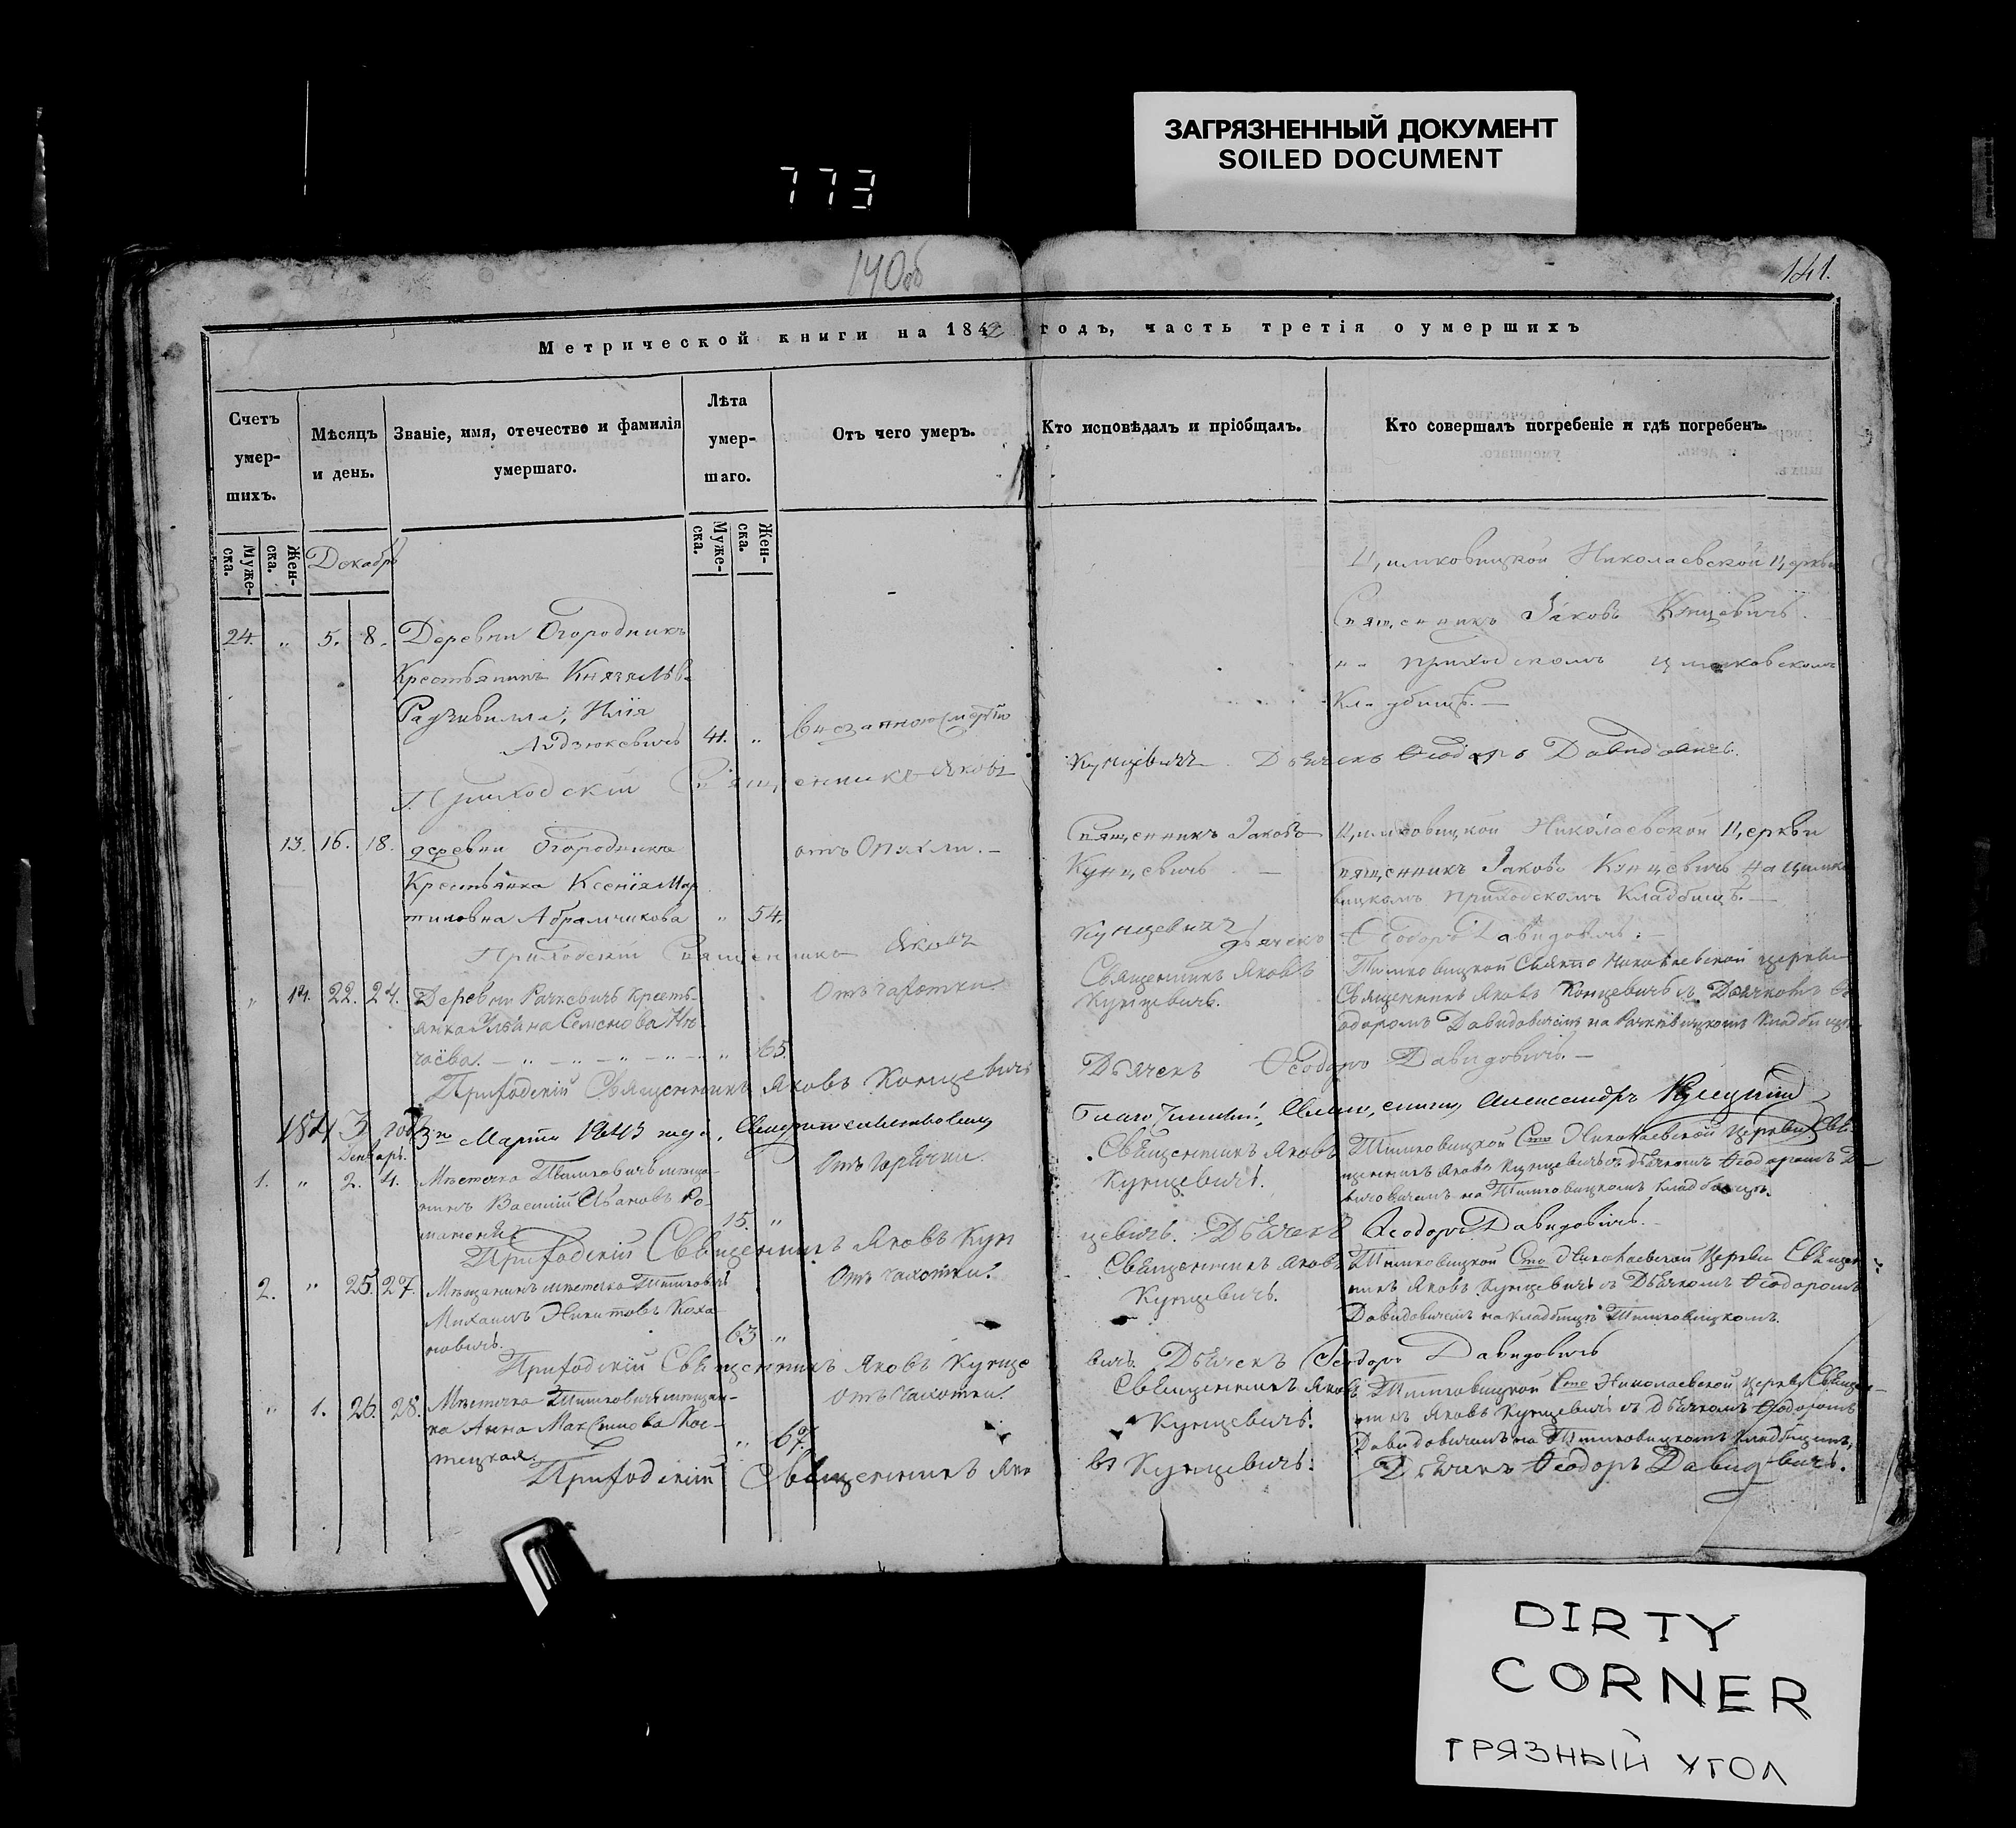 ЗАГРЯЗНЕННЫЙ ДОКУМЕНТ
SOILED DOCUMENT
773
140об
141.
Метрической книги на 1842 годъ, часть третія о умершихъ
Счетъ умер-шихъ.
Муже-ска.
Жен-ска.
Мѣсяцъ и день.
Званіе, имя, отечество и фамилія умершаго.
Лѣта умер-шаго.
Муже-ска.
Жен-ска.
Отъ чего умеръ.
Кто исповѣдалъ и пріобщалъ.
Кто совершалъ погребеніе и гдѣ погребенъ.
Декабрь
Николаевской Церкви
24. " 5. 8. Деревни Огородникъ
Священникъ Іаковъ Кунцевичъ
Крестьянинъ Князя Льва
приходскомъ
Радзивилла, Илія
41. " внезапною смертію
Кладбищѣ. —
Приходскій Священникъ Яковъ
Кунцевичъ Дьячекъ Ѳеодоръ Давидовичъ.
13. 16. 18. деревни Огородникъ
Крестьянка Ксенія Мар
тиновна Абрамчикова " 54.
отъ Опухли. —
Священникъ Іаковъ
Кунцевичъ —
Николаевской Церкви
священникъ Іаковъ Кунцевичъ на
вицкомъ приходскомъ Кладбищѣ. —
Приходскій Священникъ Яковъ
Кунцевичъ Дьячекъ Ѳеодоръ Давидовичъ. —
" 14. 22. 24. Деревни Рачкевичъ кресть-
янка Семенова
" 65.
Отъ чахотки.
Священникъ Яковъ
Кунцевичъ.
Тимковицкой Свято Николаевской церкви
Священникъ Яковъ Кунцевичъ съ Дьячкомъ Ѳе
одоромъ Давидовичемъ на Рачкевицкомъ Кладбищѣ
Приходскій Священникъ Яковъ Кунцевичъ
Дьячекъ Ѳеодоръ Давидовичъ. —
1843 годъ
3го Марта 1843 года, Свидѣтельствовалъ
Благочинный, Священникъ Александръ
Генварь.
1. " 2. 4. Мѣстечка Тимковичъ мѣща-
нинъ Василій Ивановъ Ро-
15. "
Отъ горячки.
Священникъ Яковъ
Кунцевичъ.
Тимковицкой Сто Николаевской Церкви Свя-
щенникъ Яковъ Кунцевичъ съ дьячкомъ Ѳеодоромъ Да
видовичемъ на Тимковицкомъ кладбищѣ.
Приходскій Священникъ Яковъ Кун
цевичъ. Дьячекъ Ѳеодоръ Давидовичъ. —
2. " 25. 27. Мѣщанинъ мѣстечка Тимковичъ
Михаилъ Никитовъ Коха-
новичъ.
63 "
Отъ чахотки.
Священникъ Яковъ
Кунцевичъ.
Тимковицкой Сто Николаевской Церкви Священ-
никъ Яковъ Кунцевичъ съ Дьячкомъ Ѳеодоромъ
Давидовичемъ на кладбищѣ Тимковицкомъ.
Приходскій Священникъ Яковъ Кунце
вичъ. Дьячекъ Ѳеодоръ Давидовичъ
" 1. 26. 28. Мѣстечка Тимковичъ мѣщан-
ка Анна Максимова Кос-
тецкая.
" 67.
Отъ чахотки.
Священникъ Яковъ
Кунцевичъ.
Тимковицкой Сто Николаевской церкви Священ-
никъ Яковъ Кунцевичъ съ Дьячкомъ Ѳеодоромъ
Давидовичемъ на Тимковицкомъ кладбищѣ.
Приходскій Священникъ Яко
въ Кунцевичъ. Дьячекъ Ѳеодоръ Давидовичъ.
DIRTY
CORNER
ГРЯЗНЫЙ УГОЛ